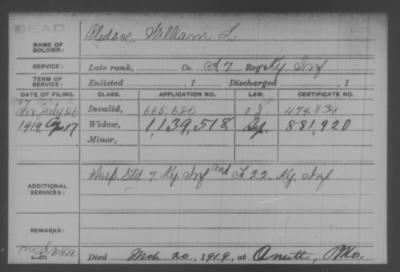 DEAD
NAME OF SOLDIER: Bledsoe, William L.
SERVICE: Late rank, Co. A 7 Reg't Ky Inf
TERM OF SERVICE: Enlisted , 1 Discharged , 1
DATE OF FILING. CLASS. APPLICATION NO. LAW. CERTIFICATE NO.
July 26 Invalid, 665,620
1919 Apr 17 Widow, 1,139,518 881,920
Minor,
ADDITIONAL SERVICES: Hosp. Std 7 Ky Inf and 22 Ky. Inf
REMARKS:
Died Mch 20, 1919, at Mo.